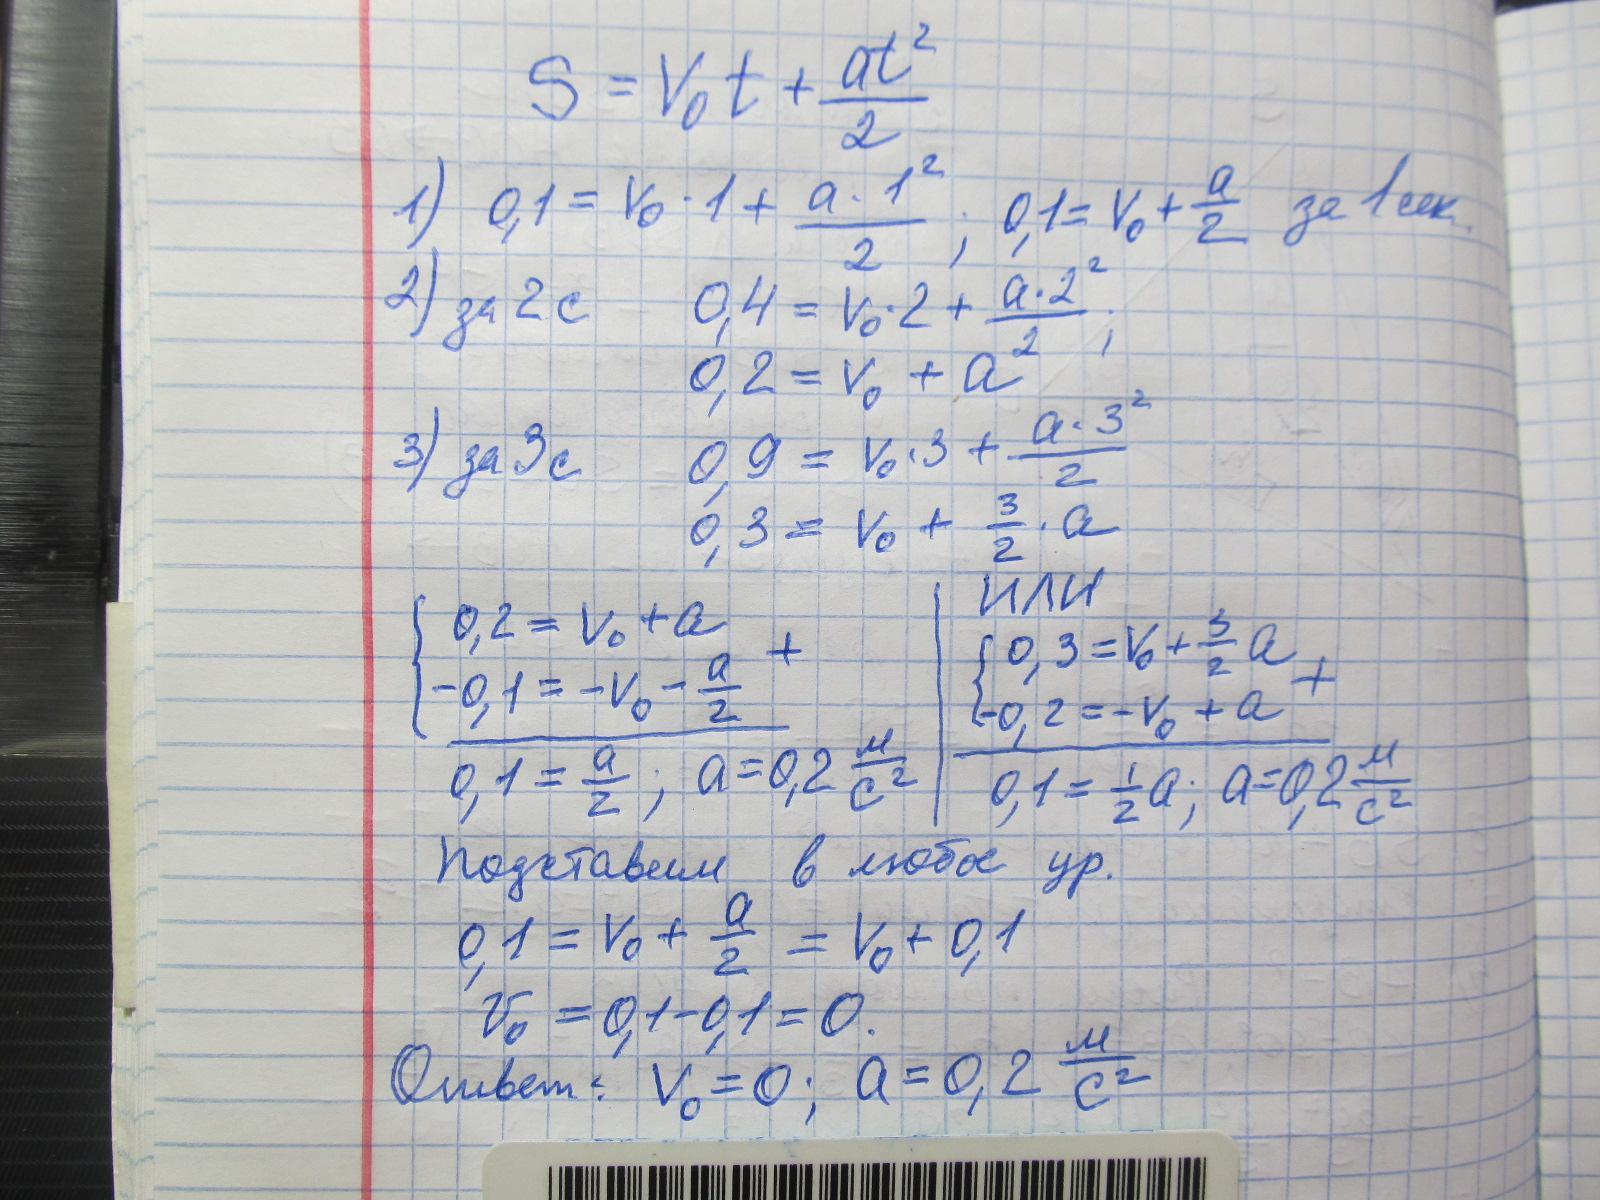 S = V₀t + at²/2
1) 0,1 = V₀·1 + a·1²/2 ; 0,1 = V₀ + a/2 за 1 сек.
2) за 2 с 0,4 = V₀·2 + a·2²/2 ;
0,2 = V₀ + a
3) за 3 с 0,9 = V₀·3 + a·3²/2
0,3 = V₀ + 3/2 · a
{ 0,2 = V₀ + a
-0,1 = -V₀ - a/2 +
0,1 = a/2 ; a = 0,2 м/с²
ИЛИ
{ 0,3 = V₀ + 3/2 a
-0,2 = -V₀ + a +
0,1 = 1/2 a ; a = 0,2 м/с²
Подставим в любое ур.
0,1 = V₀ + a/2 = V₀ + 0,1
V₀ = 0,1 - 0,1 = 0.
Ответ: V₀ = 0 ; a = 0,2 м/с²